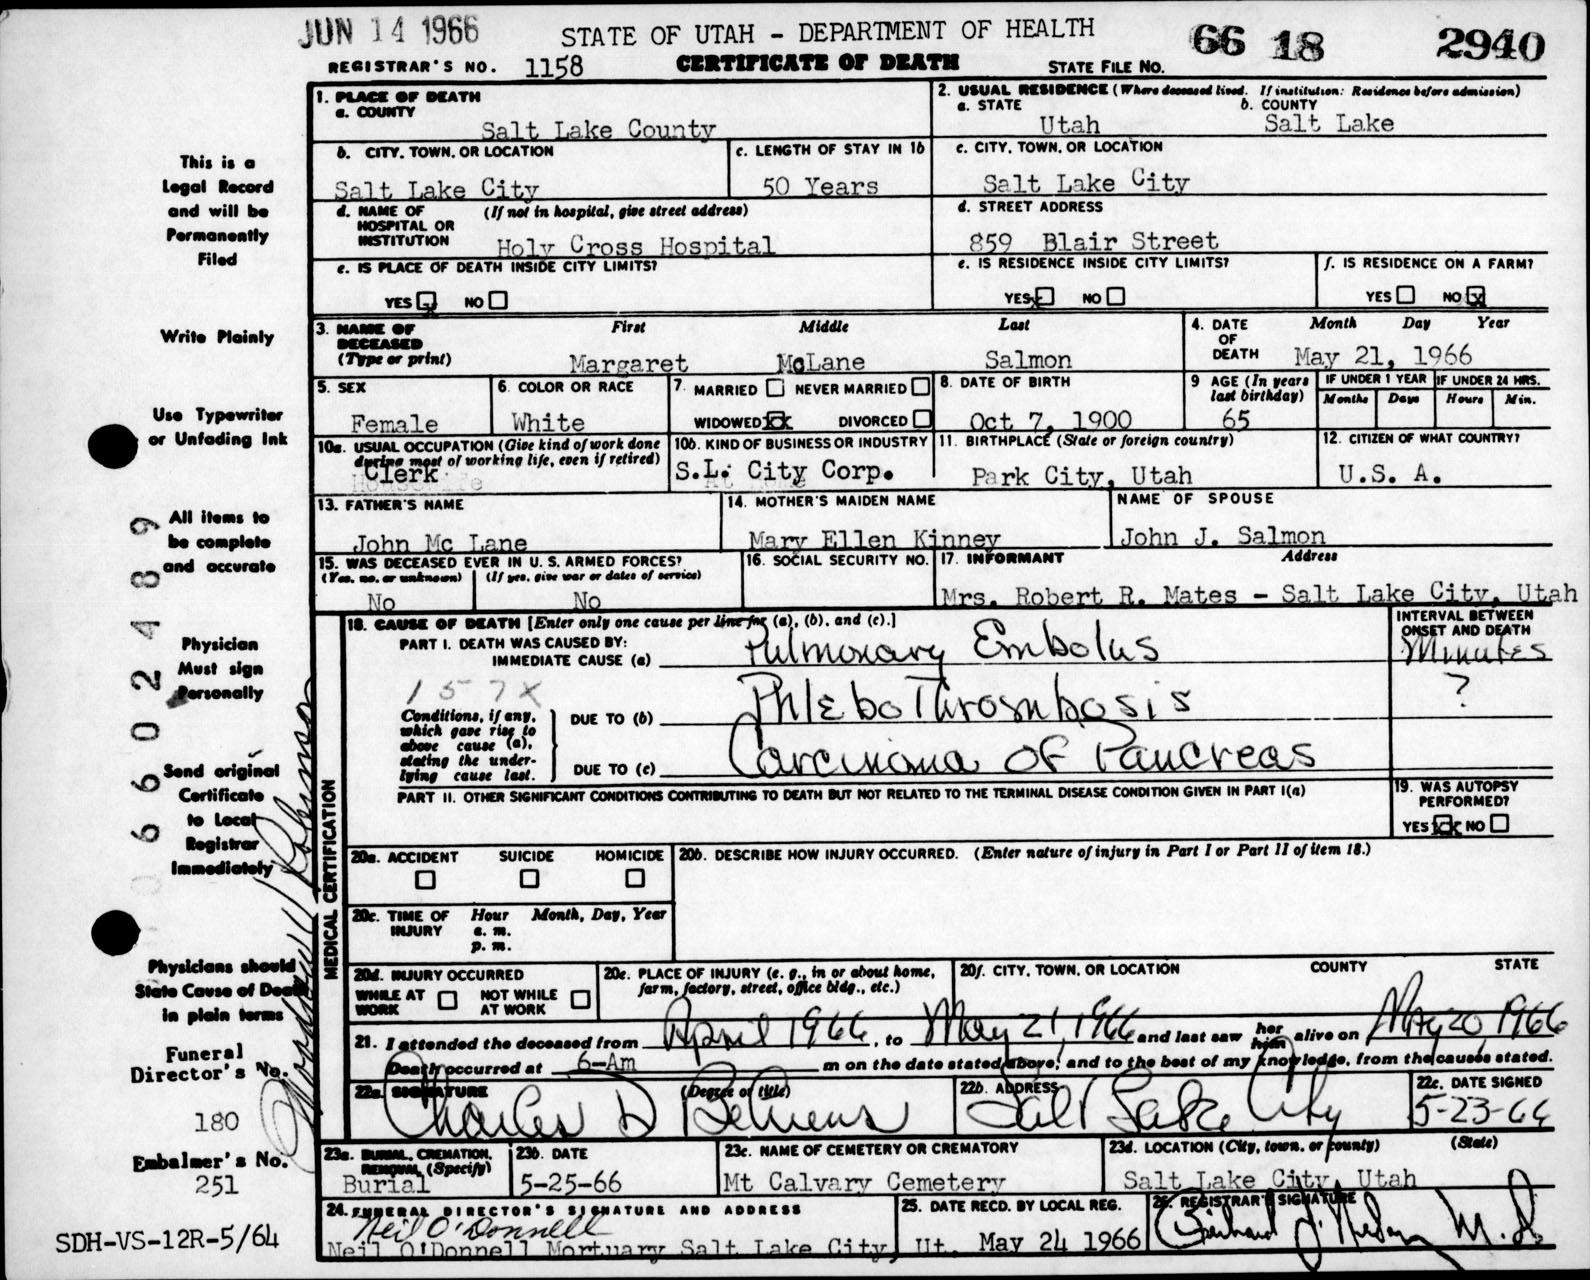 JUN 14 1966 STATE OF UTAH - DEPARTMENT OF HEALTH 66 18 2940
REGISTRAR'S NO. 1158 CERTIFICATE OF DEATH STATE FILE NO.
1. PLACE OF DEATH
a. COUNTY
Salt Lake County
2. USUAL RESIDENCE (Where deceased lived. If institution: Residence before admission)
a. STATE b. COUNTY
Utah Salt Lake
b. CITY, TOWN, OR LOCATION
Salt Lake City
c. LENGTH OF STAY IN 1b
50 Years
c. CITY, TOWN, OR LOCATION
Salt Lake City
d. NAME OF (If not in hospital, give street address)
HOSPITAL OR
INSTITUTION Holy Cross Hospital
d. STREET ADDRESS
859 Blair Street
e. IS PLACE OF DEATH INSIDE CITY LIMITS?
YES x NO
e. IS RESIDENCE INSIDE CITY LIMITS?
YES x NO
f. IS RESIDENCE ON A FARM?
YES NO x
3. NAME OF First Middle Last
DECEASED
(Type or print) Margaret McLane Salmon
4. DATE Month Day Year
OF
DEATH May 21, 1966
5. SEX
Female
6. COLOR OR RACE
White
7. MARRIED NEVER MARRIED
WIDOWED xx DIVORCED
8. DATE OF BIRTH
Oct 7, 1900
9 AGE (In years
last birthday)
65
IF UNDER 1 YEAR IF UNDER 24 HRS.
Months Days Hours Min.
10a. USUAL OCCUPATION (Give kind of work done
during most of working life, even if retired)
Clerk
10b. KIND OF BUSINESS OR INDUSTRY
S.L. City Corp.
11. BIRTHPLACE (State or foreign country)
Park City, Utah
12. CITIZEN OF WHAT COUNTRY?
U.S. A.
13. FATHER'S NAME
John Mc Lane
14. MOTHER'S MAIDEN NAME
Mary Ellen Kinney
NAME OF SPOUSE
John J. Salmon
15. WAS DECEASED EVER IN U. S. ARMED FORCES?
(Yes, no, or unknown) (If yes, give war or dates of service)
No No
16. SOCIAL SECURITY NO.
17. INFORMANT Address
Mrs. Robert R. Mates - Salt Lake City, Utah
18. CAUSE OF DEATH [Enter only one cause per line for (a), (b), and (c).]
INTERVAL BETWEEN
ONSET AND DEATH
PART I. DEATH WAS CAUSED BY:
IMMEDIATE CAUSE (a) Pulmonary Embolus Minutes
157X
Conditions, if any,
which gave rise to
above cause (a),
stating the under-
lying cause last.
DUE TO (b) PhleboThrombosis ?
DUE TO (c) Carcinoma OF Pancreas
PART II. OTHER SIGNIFICANT CONDITIONS CONTRIBUTING TO DEATH BUT NOT RELATED TO THE TERMINAL DISEASE CONDITION GIVEN IN PART I(a)
19. WAS AUTOPSY
PERFORMED?
YES xx NO
MEDICAL CERTIFICATION
20a. ACCIDENT SUICIDE HOMICIDE
20b. DESCRIBE HOW INJURY OCCURRED. (Enter nature of injury in Part I or Part II of item 18.)
20c. TIME OF Hour Month, Day, Year
INJURY a. m.
p. m.
20d. INJURY OCCURRED
WHILE AT NOT WHILE
WORK AT WORK
20e. PLACE OF INJURY (e. g., in or about home,
farm, factory, street, office bldg., etc.)
20f. CITY, TOWN, OR LOCATION COUNTY STATE
21. I attended the deceased from April 1966, to May 21, 1966 and last saw her him alive on May 20, 1966
Death occurred at 6-Am m on the date stated above; and to the best of my knowledge, from the causes stated.
22a. SIGNATURE (Degree or title)
Charles D Behrens
22b. ADDRESS
Salt Lake City
22c. DATE SIGNED
5-23-66
23a. BURIAL, CREMATION,
REMOVAL (Specify)
Burial
23b. DATE
5-25-66
23c. NAME OF CEMETERY OR CREMATORY
Mt Calvary Cemetery
23d. LOCATION (City, town, or county) (State)
Salt Lake City, Utah
24. FUNERAL DIRECTOR'S SIGNATURE AND ADDRESS
Neil O'Donnell
Neil O'Donnell Mortuary Salt Lake City, Ut.
25. DATE RECD. BY LOCAL REG.
May 24 1966
26. REGISTRAR'S SIGNATURE
This is a
Legal Record
and will be
Permanently
Filed
Write Plainly
Use Typewriter
or Unfading Ink
All items to
be complete
and accurate
Physician
Must sign
Personally
Send original
Certificate
to Local
Registrar
Immediately
Physicians should
State Cause of Death
in plain terms
Funeral
Director's No.
180
Embalmer's No.
251
SDH-VS-12R-5/64
0 6 6 0 2 4 8 9